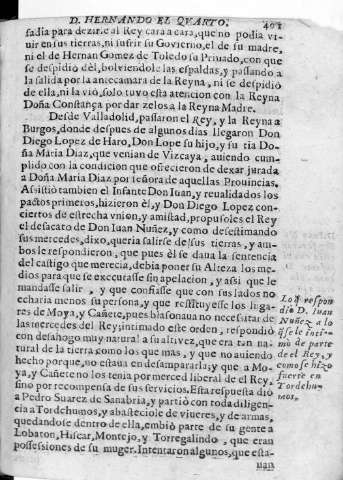 D. HERNANDO EL QVARTO. 401
sadia para dezirle al Rey cara a cara, que no podia vi-
uir en sus tierras, ni sufrir su Govierno, el de su madre,
ni el de Hernan Gomez de Toledo su Priuado, con que
se despidió dèl, bolviendole las espaldas, y passando a
la salida por la antecamara de la Reyna, ni se despidió
de ella, ni la viò, solo tuvo esta atencion con la Reyna
Doña Constança por dar zelos a la Reyna Madre.
Desde Valladolid, passaron el Rey, y la Reyna a
Burgos, donde despues de algunos dias llegaron Don
Diego Lopez de Haro, Don Lope su hijo, y su tia Do-
ña Maria Diaz, que venian de Vizcaya, auiendo cum-
plido con la condicion que ofrecieron de dexar jurada
a Doña Maria Diaz por señora de aquellas Provincias.
Assistiò tambien el Infante Don Iuan, y reualidados los
pactos primeros, hizieron èl, y Don Diego Lopez con-
ciertos de estrecha vnion, y amistad, propusoles el Rey
el desacato de Don Iuan Nuñez, y como desestimando
sus mercedes, dixo, queria salirse de sus tierras, y am-
bos le respondieron, que pues èl se daua la sentencia
del castigo que merecia, debia poner su Alteza los me-
dios para que se executasse sin apelacion, y assi que le
mandasse salir, y que confiasse que con sus lados no
echaria menos su persona, y que restituyesse los luga-
res de Moya, y Cañete, pues blasonaua no necessitar de
las mercedes del Rey; intimado este orden, respondiò
con desahogo muy natural a su altivez, que era tan na-
tural de la tierra como los que mas, y que no auiendo
hecho porque, no estaua en desampararla; y que a Mo-
ya, y Cañete no los tenia por merced liberal de el Rey,
sino por recompensa de sus servicios. Esta respuesta diò
a Pedro Suarez de Sanabria, y partiò con toda diligen-
cia a Tordehumos, y abasteciole de viueres, y de armas,
quedandose dentro de ella, embiò parte de su gente a
Lobaton, Hiscar, Montejo, y Torregalindo, que eran
possessiones de su muger. Intentaron algunos, que esta-
uan
Lo q̃ respon
diò D. Iuan
Nuñez a lo
q̃ se le inti-
mò de parte
de el Rey, y
como se hizo
fuerte en
Tordehu-
mos.